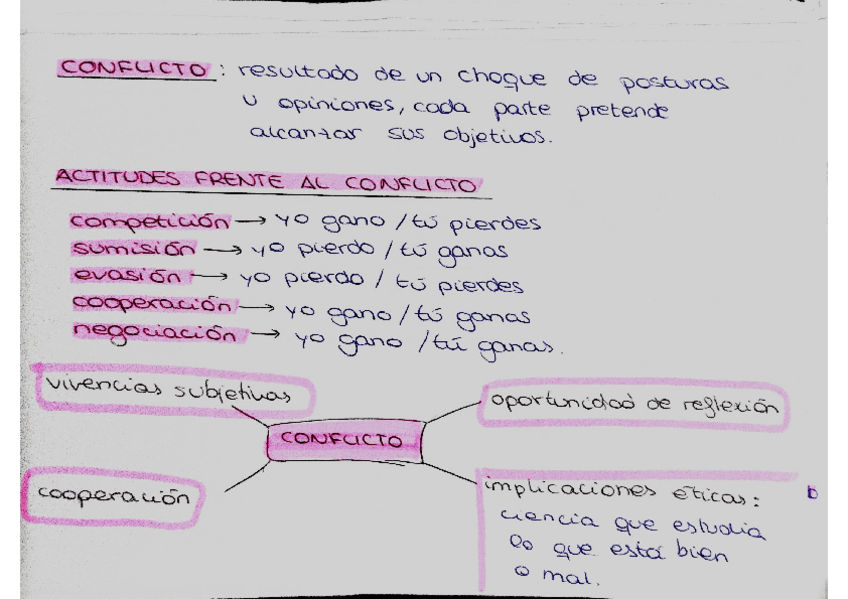 CONFLICTO: resultado de un choque de posturas
u opiniones, cada parte pretende
alcanzar sus objetivos.
ACTITUDES FRENTE AL CONFLICTO
competición → yo gano / tú pierdes
sumisión → yo pierdo / tú ganas
evasión → yo pierdo / tú pierdes
cooperación → yo gano / tú ganas
negociación → yo gano / tú ganas.
vivencias subjetivas
oportunidad de reflexión
CONFLICTO
cooperación
implicaciones éticas:
ciencia que estudia
lo que está bien
o mal.